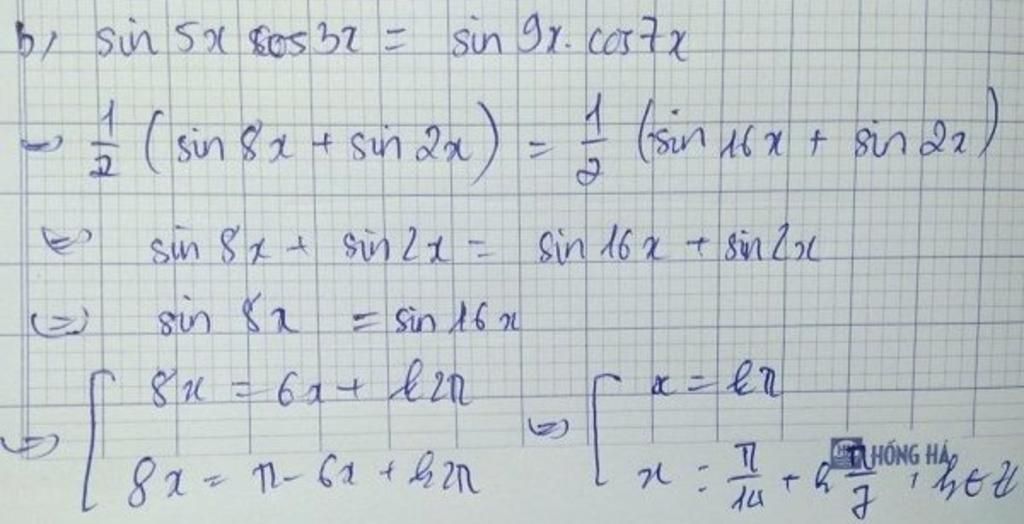 b, sin 5x cos3x = sin 9x. cos7x
⇔ 1/2 (sin 8x + sin 2x) = 1/2 (sin 16x + sin 2x)
⇔ sin 8x + sin 2x = sin 16x + sin 2x
⇔ sin 8x = sin 16x
⇔ [ 8x = 6x + k2π ⇔ [ x = kπ
8x = π - 6x + k2π x = π/14 + k π/7 , k ∈ Z
HỒNG HÀ